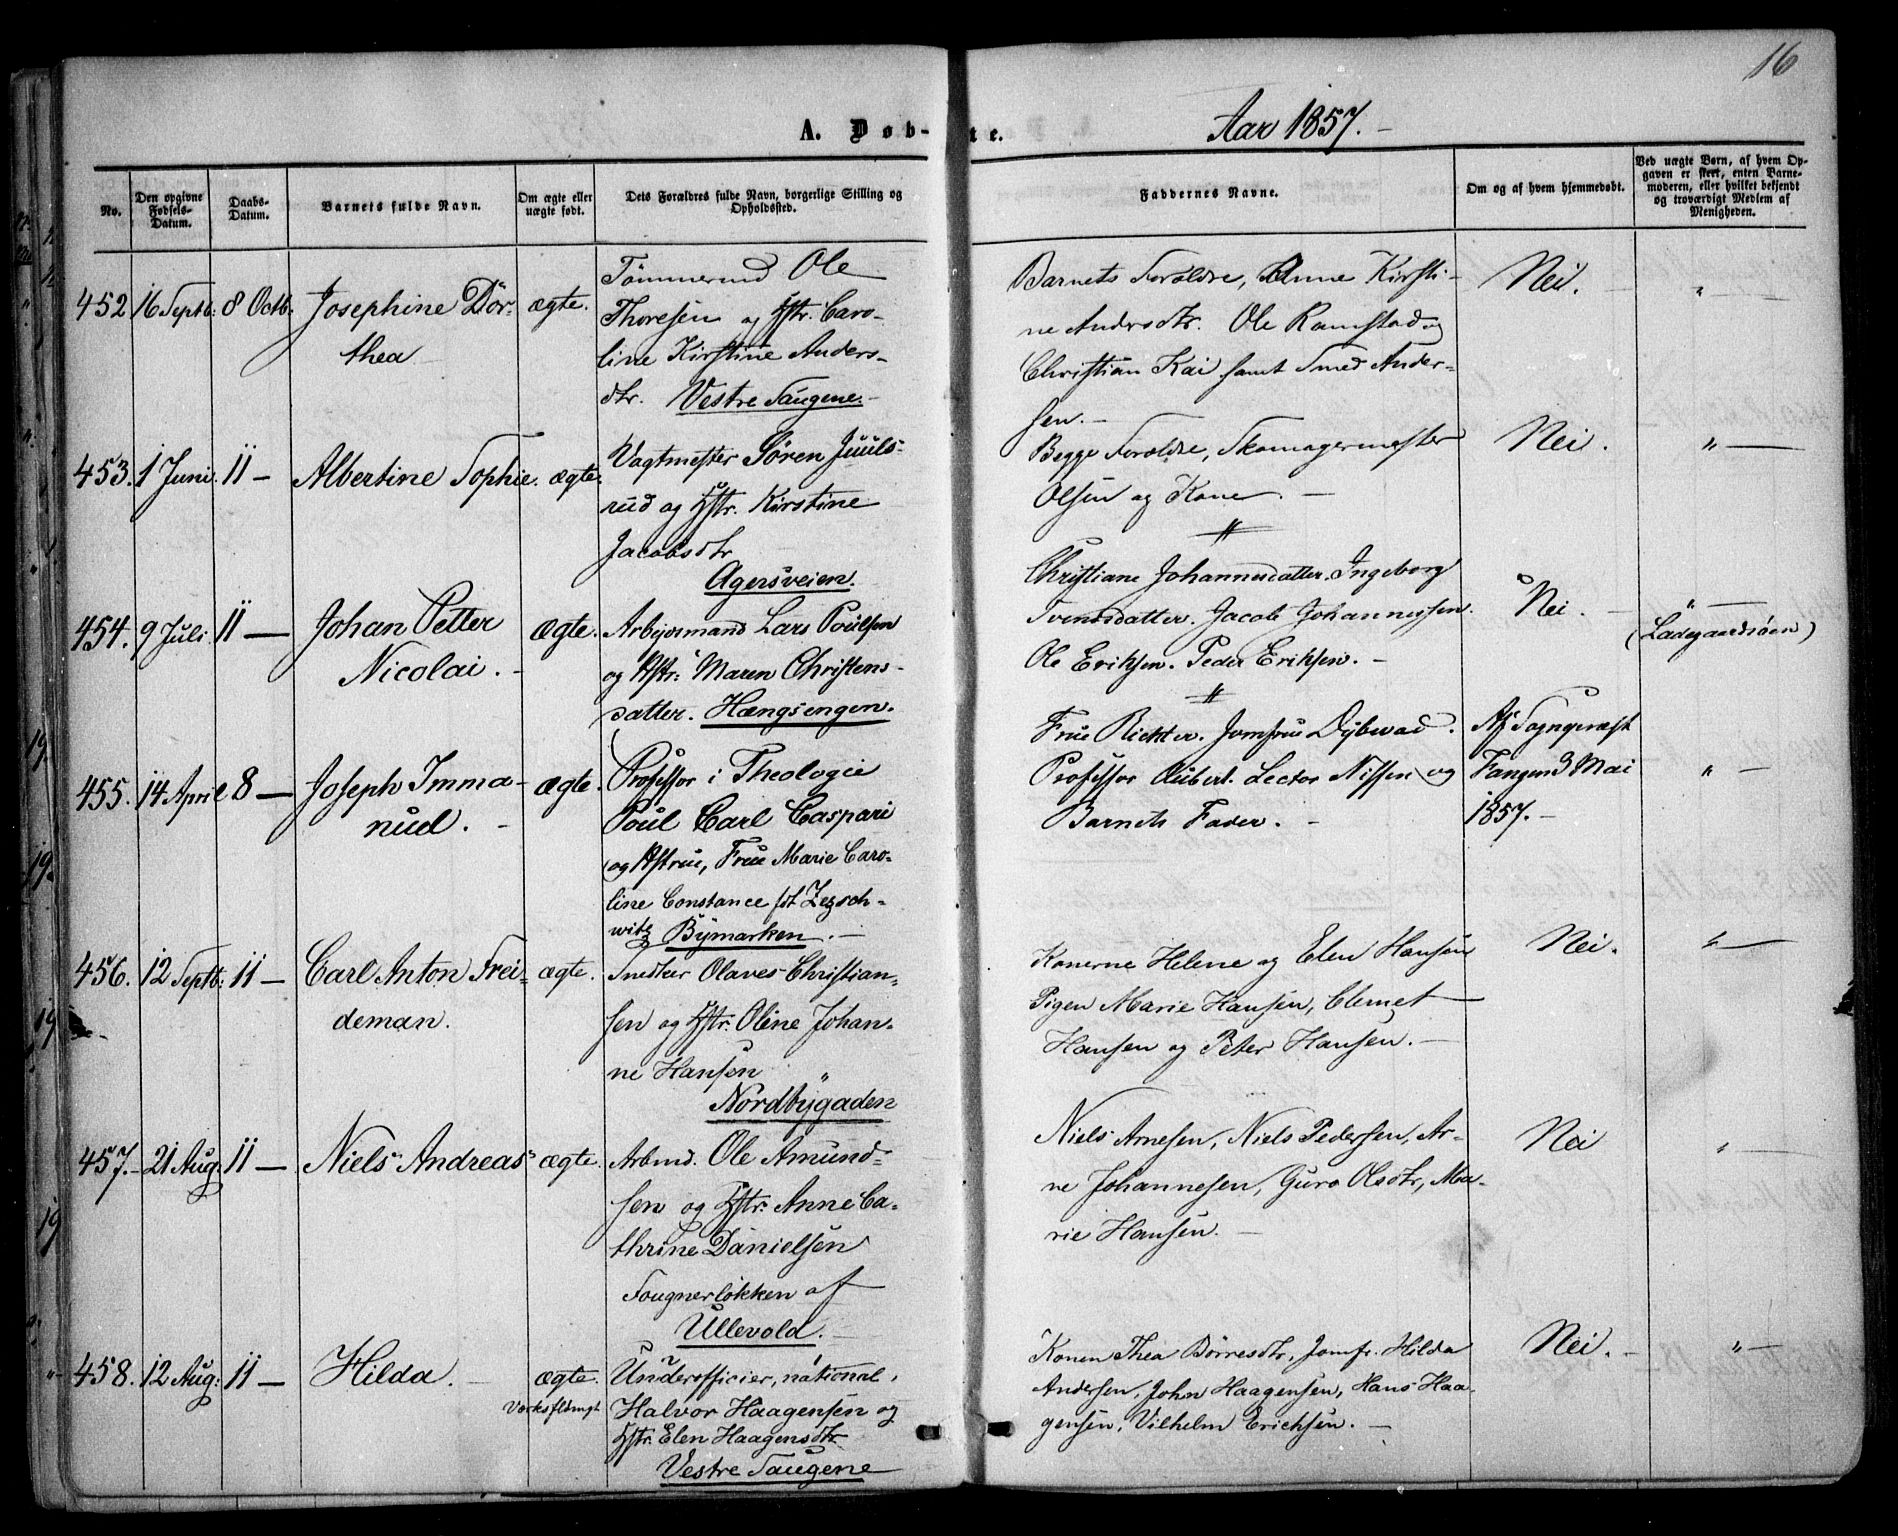 16
A. Døb-
te.
Aar 1857.-
No.
Den opgivne Fødsels-Datum.
Daabs-Datum.
Barnets fulde Navn.
Om ægte eller uægte født.
Dets Forældres fulde Navn, borgerlige Stilling og Opholdssted.
Faddernes Navne.
Om og af hvem hjemmedøbt.
Ved uægte Børn, af hvem Op-
gaven er skeet, enten Barne-
moderen, eller hvilket bekjendt
og troværdigt Medlem af
Menigheden.
452 16 Septb: 8 Octb: Josephine Dor-
thea
ægte.
Tømmermd Ole
Thoresen og Hstr: Caro-
line Kirstine Anders-
dtr. Vestre Saugene.-
Barnets Forældre, Anne Kirsti-
ne Andersdtr. Ole Ramstad og
Christian Kai samt Smed Ander-
sen.-
Nei. "
453. 1 Juni. 11 - Albertine Sophie. ægte.
Vagtmester Søren Juuls-
rud og Hstr. Kirstine
Jacobsdtr
Agersveien.
Begge Forældre, Skomagermester
Olsen og Kone. -
Nei. "
454. 9 Juli. 11 - Johan Petter
Nicolai. -
ægte.
Arbejdsmand Lars Poulsen
og Hstr: Maren Christens-
datter. Hængsengen.
Christiane Johannesdatter. Ingeborg
Svendsdatter. Jacob Johannessen.
Ole Eriksen. Peder Eriksen. -
Nei. "
(Ladegaardsøen)
455. 14 April 8 - Joseph Imma-
nuel. -
ægte.
Professor i Theologie
Poul Carl Caspari
og Hstrue, Frue Marie Caro-
line Constance fdt Zezsch-
witz Bymarken. -
Frue Richter. Jomfrue Dybwad.
Professor Aubert. Lector Nissen og
Barnets Fader. -
Af Sognepræst
Tangen d Mai
1857. -
" -
456. 12 Septb: 11 - Carl Anton Frei-
deman.
ægte.
Snedker Olaves Christian-
sen og Hstr: Oline Johan-
ne Hansen
Nordbygaden
Konerne Helene og Elen Hansen
Pigen Marie Hansen, Clemet
Hansen og Peter Hansen. -
Nei. "
457.- 21 Aug: 11 - Niels Andreas ægte.
Arbmd. Ole Amund-
sen og Hstr: Anne Ca-
thrine Danielsen
Sougnerløkken af
Ullevold. -
Niels Arnesen, Niels Pedersen, Ar-
ne Johannesen, Guro Olsdtr, Ma-
rie Hansen. -
Nei "
458. 12 Aug: 11 - Hilda. - ægte.
Underofficier, national,
Halvor Haagensen og
Hstr. Elen Haagensdtr
Vestre Saugene
Konen Thea Børresdtr, Jomfr. Hilda
Andersen, John Haagensen, Hans Haa-
gensen, Vilhelm Erichsen. -
Nei. - " -